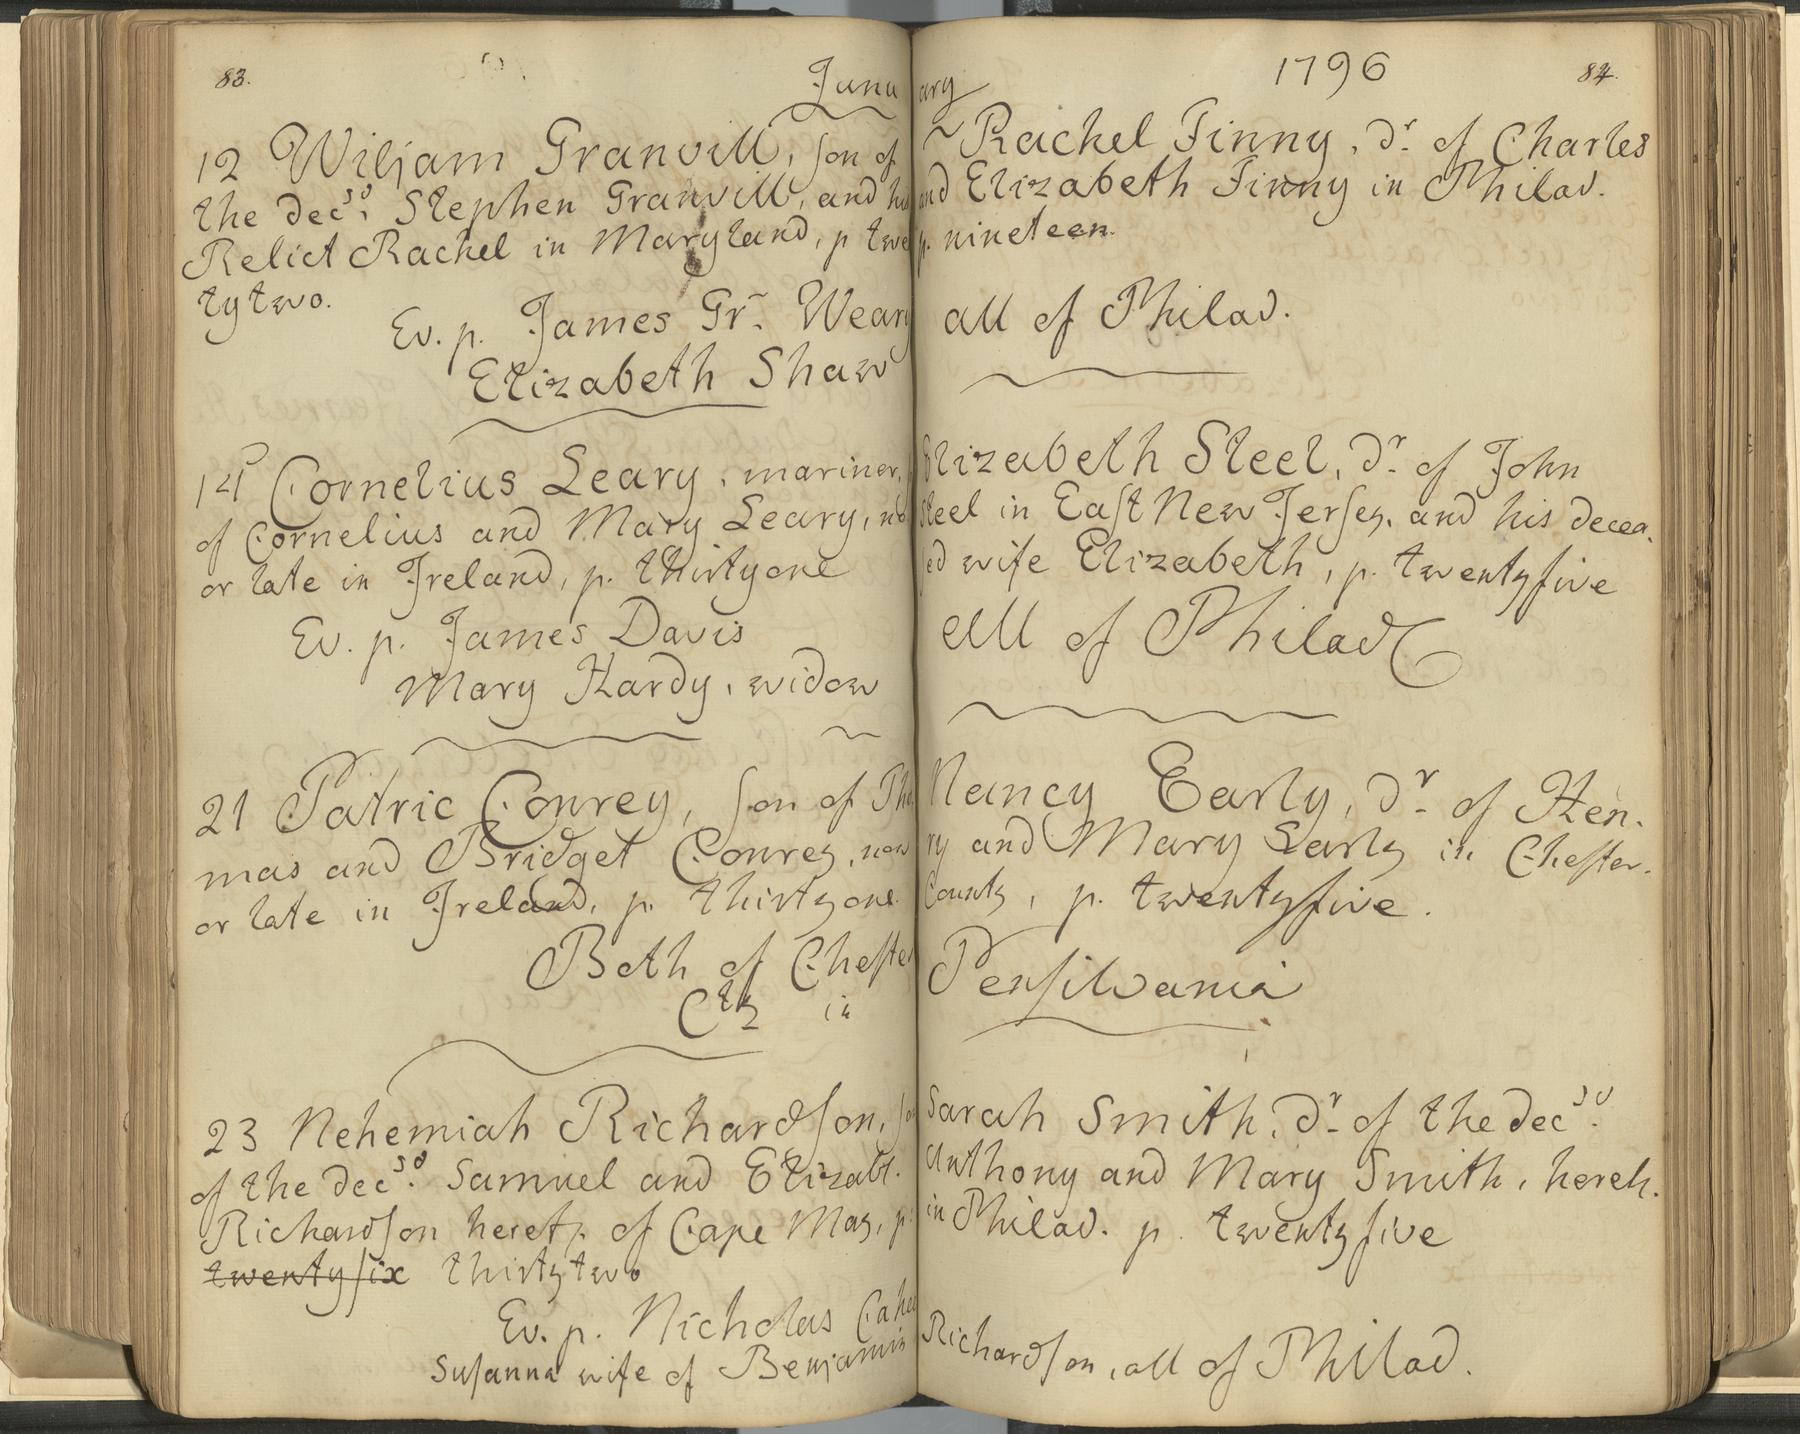 83.
Janu
12 Wiljam Granvill, son of
the dec.sd Stephen Granvill, and his
Relict Rachel in Maryland, p twe
tytwo.
Ev. p. James Gr. Weary
Elizabeth Shaw
14 Cornelius Leary, mariner,
of Cornelius and Mary Leary, now
or late in Ireland, p. thirtyone
Ev. p. James Davis
Mary Hardy, widow
21 Patric Conrey, son of Tho
mas and Bridget Conrey, now
or late in Ireland, p. thirtyone.
Both of Chester
Cty in
23 Nehemiah Richardson, son
of the dec.sd Samuel and Elizabt.
Richardson heretf. of Cape May, p.
twentysix thirtytwo
Ev. p. Nicholas
Susanna wife of Benjamin
ary 1796 84.
Rachel Finny, dr. of Charles
and Elizabeth Finny in Philad.
p. nineteen.
all of Philad.
Elizabeth Steel, dr. of John
Steel in East New Jersey, and his decea.
sed wife Elizabeth, p. twentyfive
all of Philad
Nancy Early, dr. of Hen.
ry and Mary Early in Chester.
County, p. twentyfive.
Pensilvania
Sarah Smith, dr. of the decsd.
Anthony and Mary Smith, heret.
in Philad. p. twentyfive
Richardson, all of Philad.